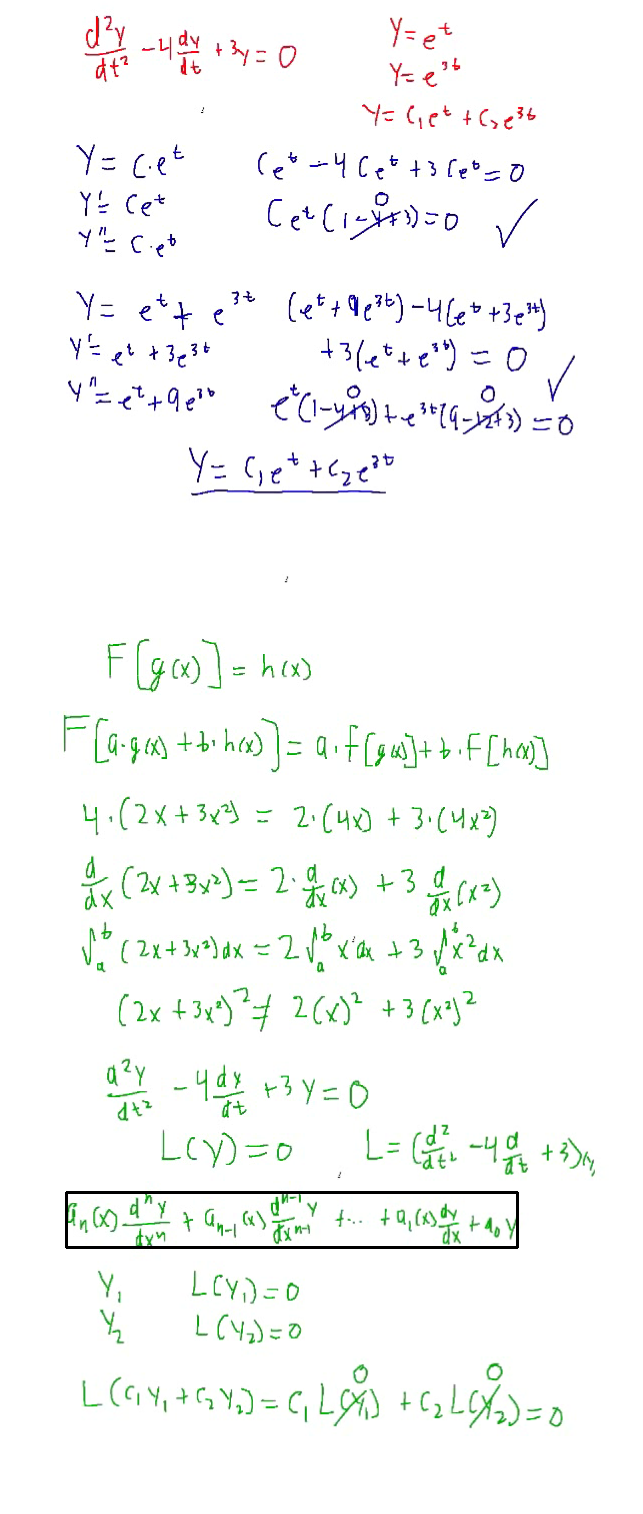 d²y/dt² - 4 dy/dt + 3y = 0
y = e^t
y = e^3t
y = c₁e^t + c₂e^3t
y = c·e^t
y' = ce^t
y'' = c·e^t
ce^t - 4ce^t + 3ce^t = 0
ce^t(1-4+3) = 0 ✓
0
y = e^t + e^3t
y' = e^t + 3e^3t
y'' = e^t + 9e^3t
(e^t + 9e^3t) - 4(e^t + 3e^3t)
+3(e^t + e^3t) = 0 ✓
0 0
e^t(1-4+3) + e^3t(9-12+3) = 0
y = c₁e^t + c₂e^3t
F[g(x)] = h(x)
F[a·g(x) + b·h(x)] = a·F[g(x)] + b·F[h(x)]
4·(2x + 3x²) = 2·(4x) + 3·(4x²)
d/dx (2x + 3x²) = 2·d/dx (x) + 3 d/dx (x²)
∫_a^b (2x + 3x²)dx = 2∫_a^b x dx + 3∫_a^b x²dx
(2x + 3x²)² ≠ 2(x)² + 3(x²)²
d²y/dt² - 4 dy/dt + 3y = 0
L(y) = 0 L = (d²/dt² - 4 d/dt + 3)
aₙ(x) dⁿy/dxⁿ + aₙ₋₁(x) dⁿ⁻¹y/dxⁿ⁻¹ + ... + a₁(x) dy/dx + a₀y
y₁ L(y₁) = 0
y₂ L(y₂) = 0
0 0
L(c₁y₁ + c₂y₂) = c₁L(y₁) + c₂L(y₂) = 0